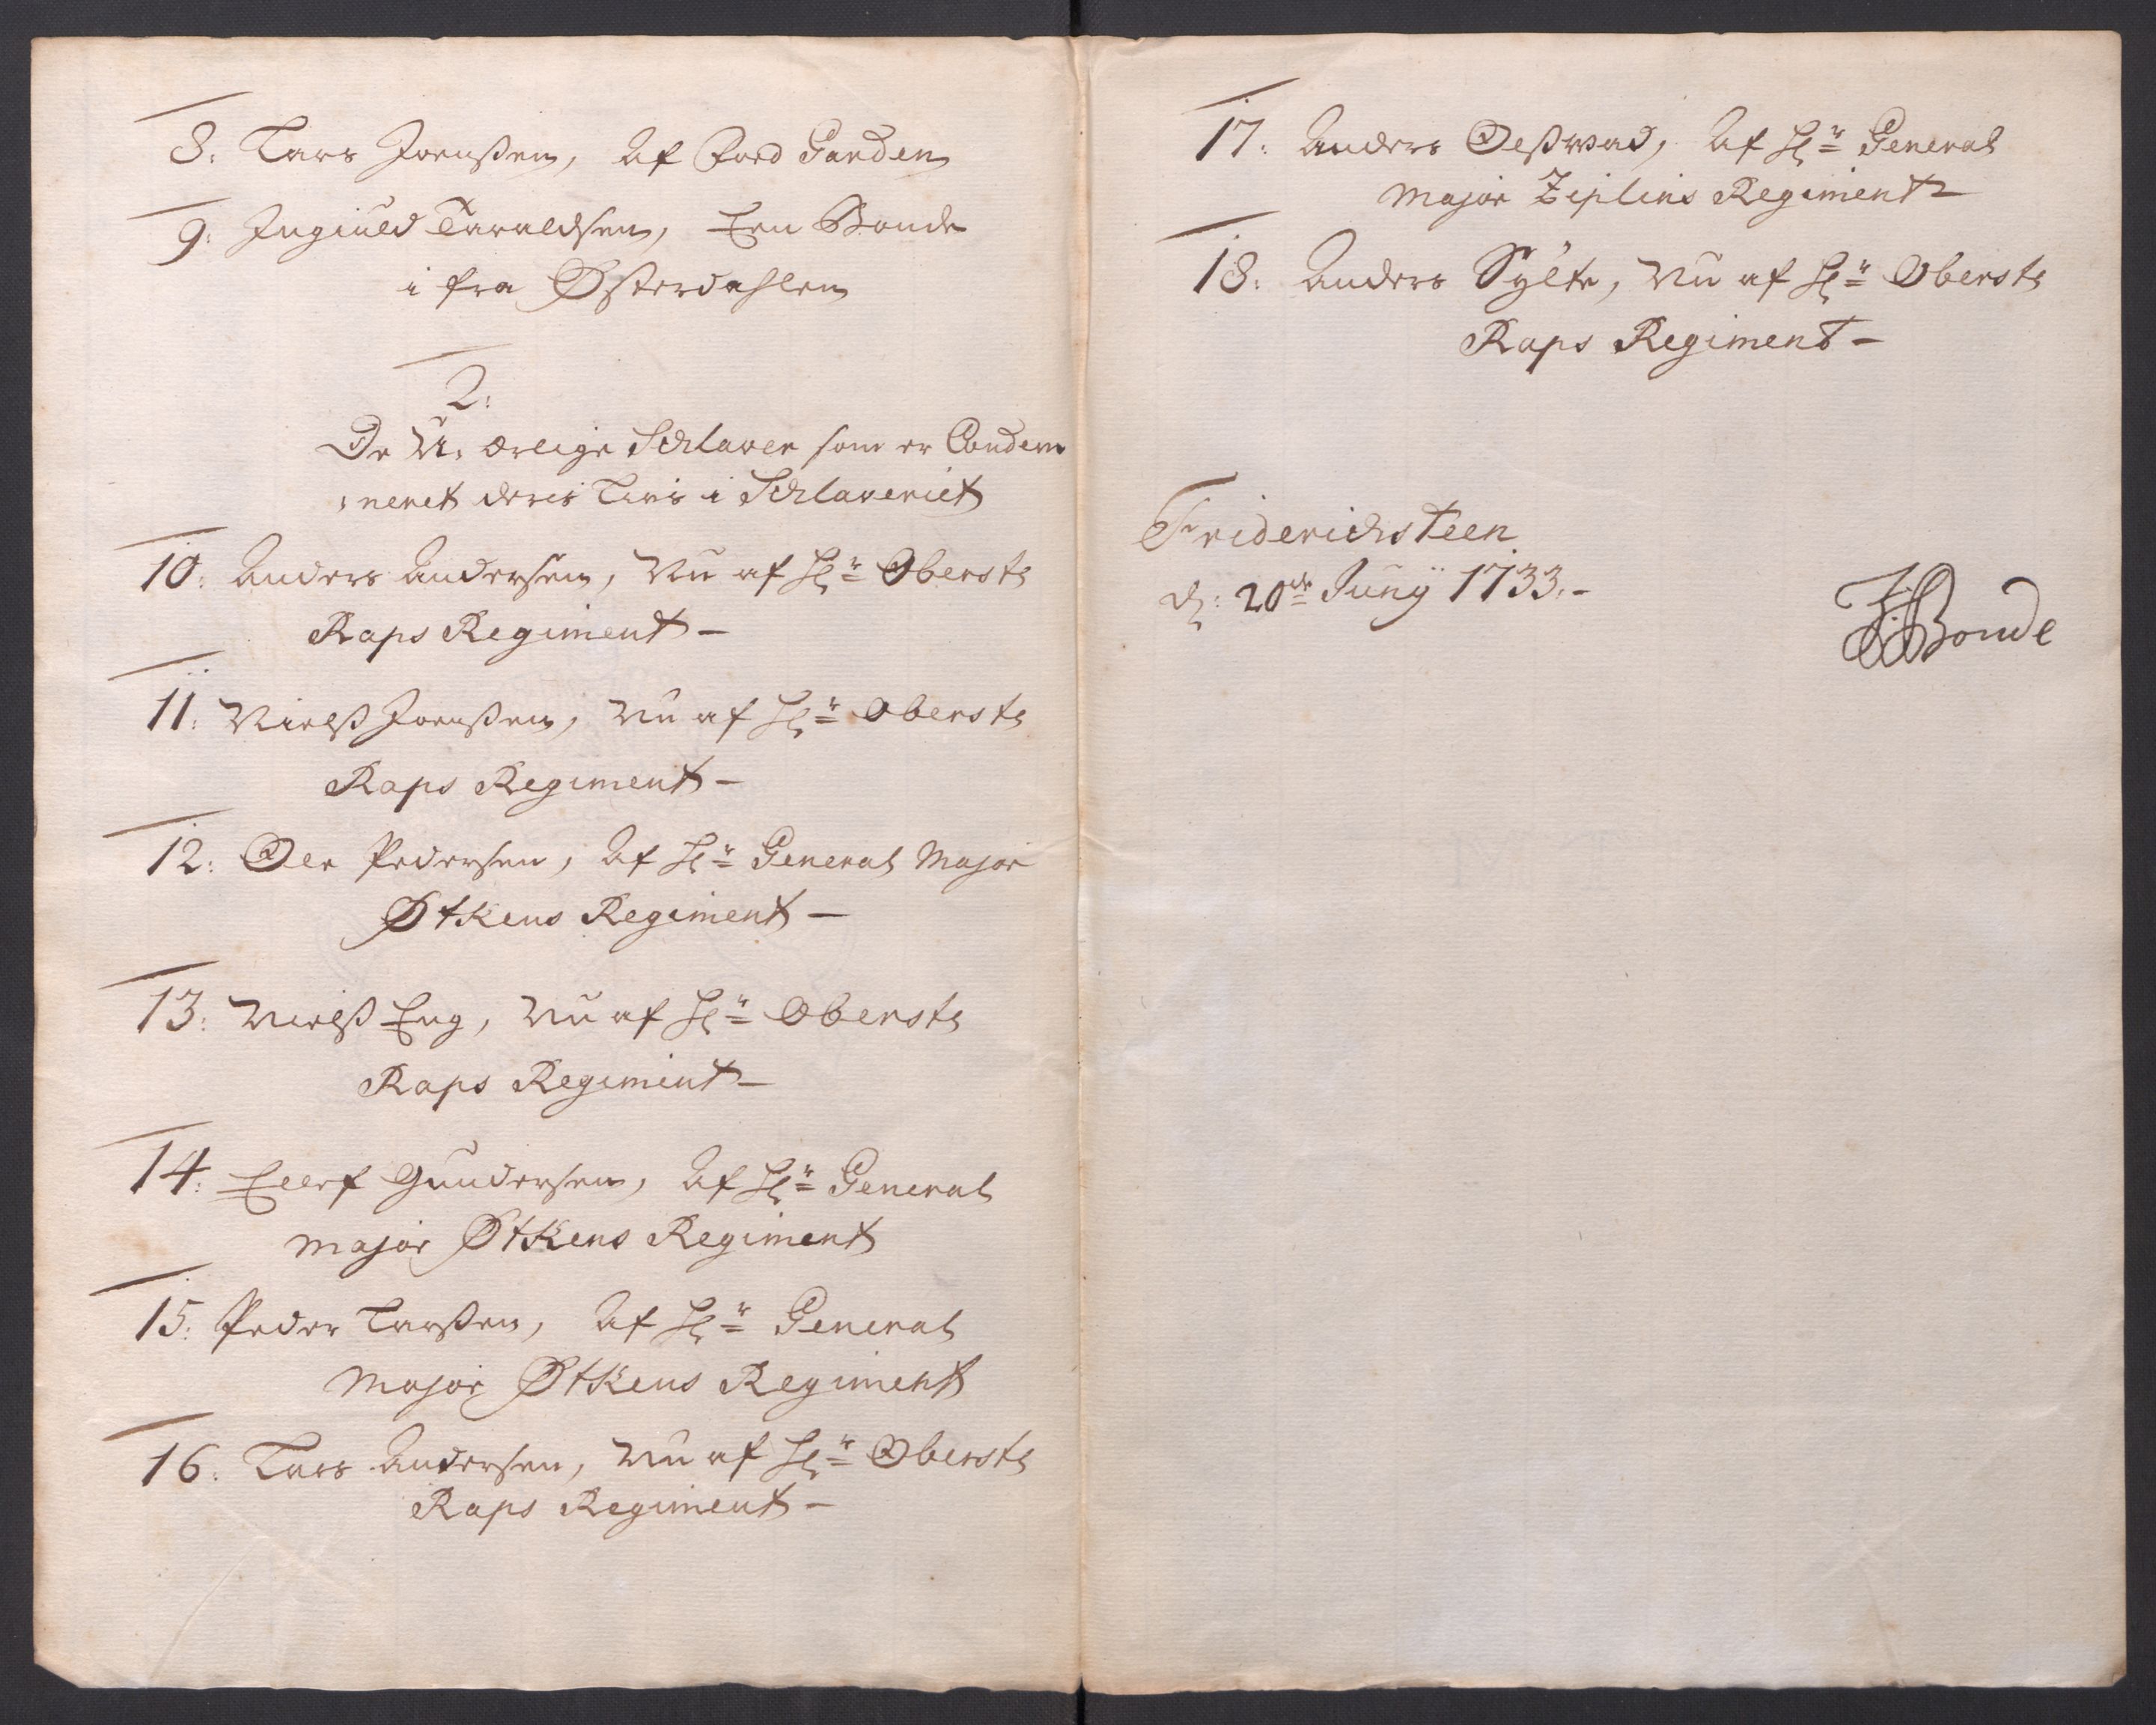 8: Lars Joenßen, Af Foed Garden
9: Ingiuld Taraldsen, Een Bonde
i fra Østerdahlen
2:
De U: ærlige Schlaver som er Condem
:neret deris Livs i Schlaveriet
10: Anders Andersen, Nu af Hr: Oberste
Raps Regiment –
11: Nielß Joenßen, Nu af Hr: Oberste
Raps Regiment –
12: Ole Pedersen, Af Hr: General Major
Øtkens Regiment –
13: Nielß Eng, Nu af Hr: Oberste
Raps Regiment –
14: Elef Gundersen, Af Hr: General
Major Øtkens Regiment
15: Peder Larßen, Af Hr: General
Major Øtkens Regiment
16: Lars Andersen, Nu af Hr: Oberste
Raps Regiment –
17: Anders, Af Hr: General
Major Ziplins Regiment –
18: Anders Sylte, Nu af Hr: Oberste
Raps Regiment –
Friderichsteen
d: 20de Juny 1733. –
Bonde